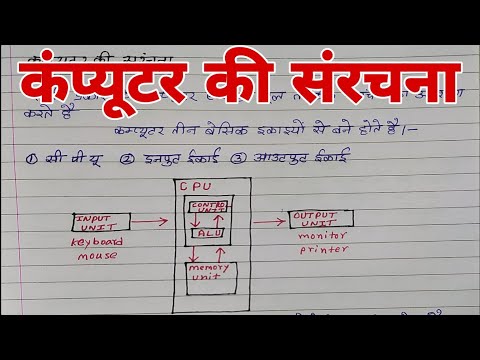 कम्प्यूटर की सरंचना
कंप्यूटर की संरचना
करते है
कम्प्यूटर तीन बेसिक इकाइयो से बने होते है।-
① सी पी यू ② इनपुट ईकाई ③ आउटपुट ईकाई
CPU
CONTROL
UNIT
INPUT
UNIT
keyboard
mouse
ALU
OUTPUT
UNIT
monitor
printer
memory
unit